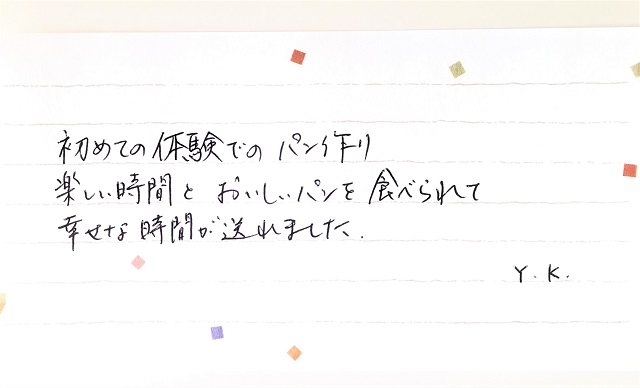 初めての体験でのパン作り
楽しい時間とおいしいパンを食べられて
幸せな時間が送れました.
Y.K.